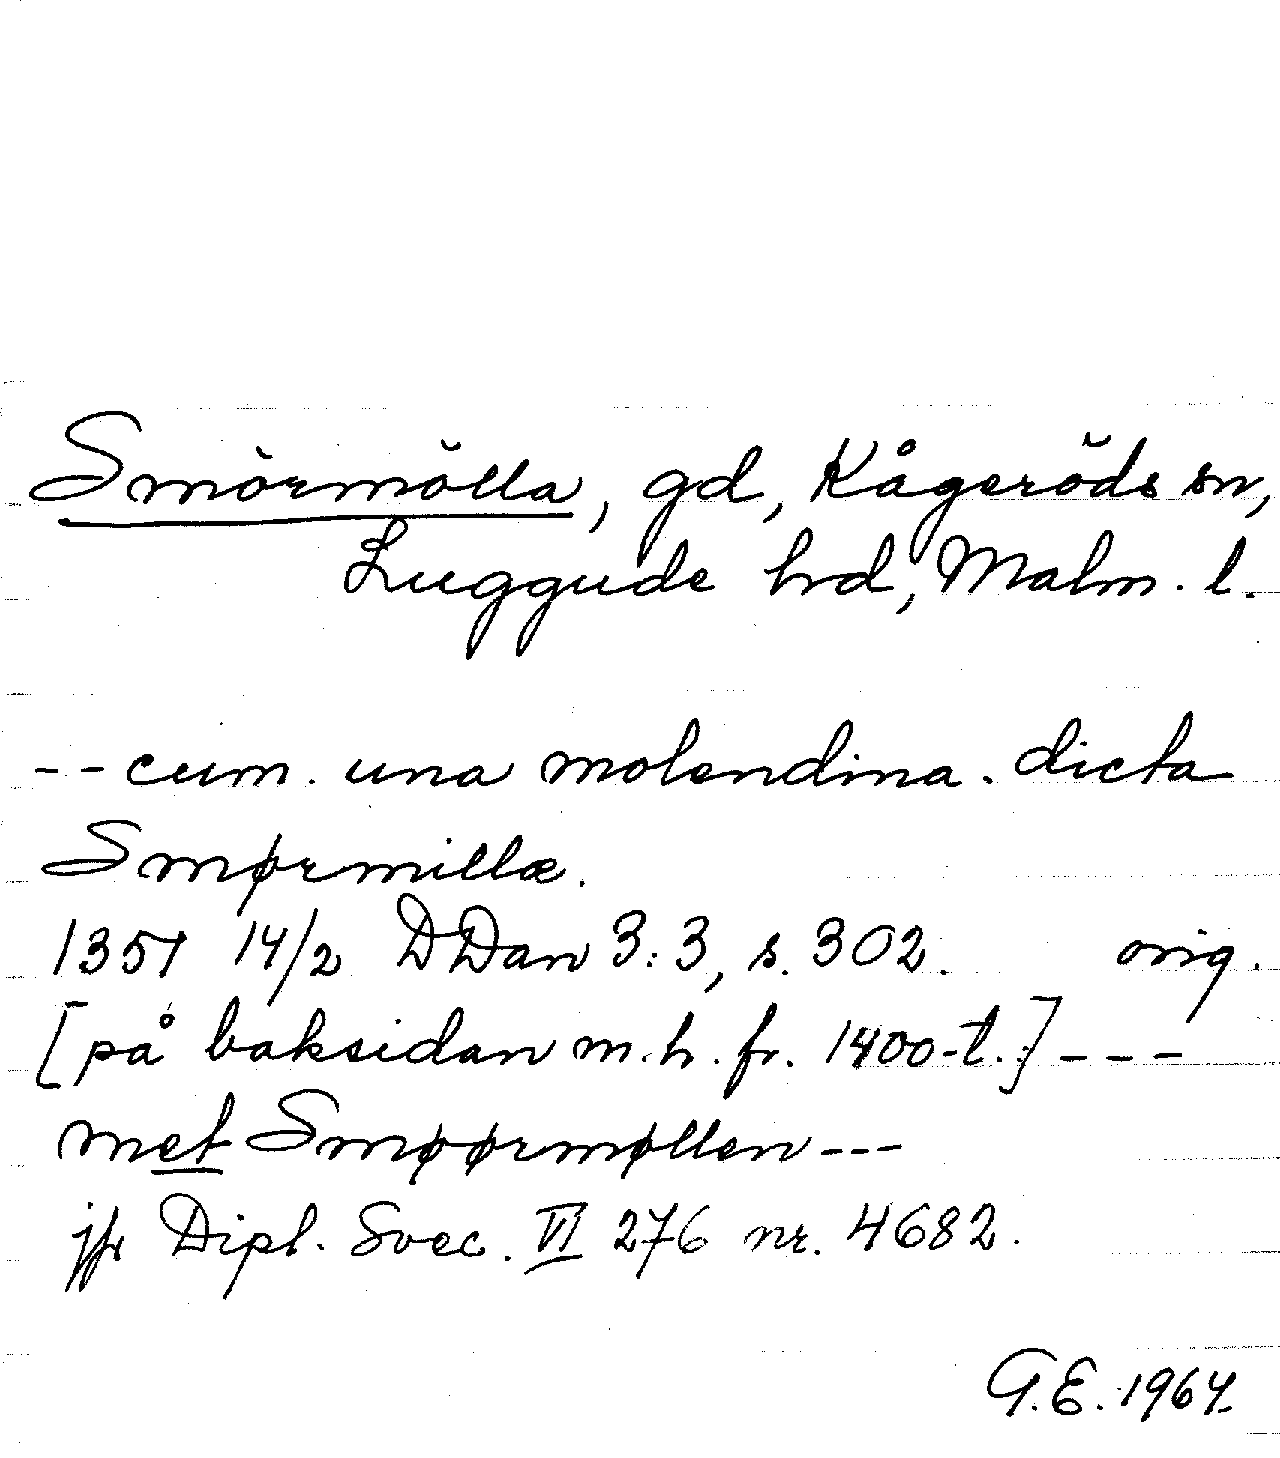 Smörmölla, gd, Kågeröds sn,
Luggude hrd, Malm. l.
-- cum. una molendina. dicta
Smørmillæ.
1351 14/2 DDan 3:3, s. 302. orig.
[på baksidan m.h. fr. 1400-t.] ---
met Smøørmøllen ---
jfr Dipl. Svec. VI 276 nr. 4682.
G.E. 1964.